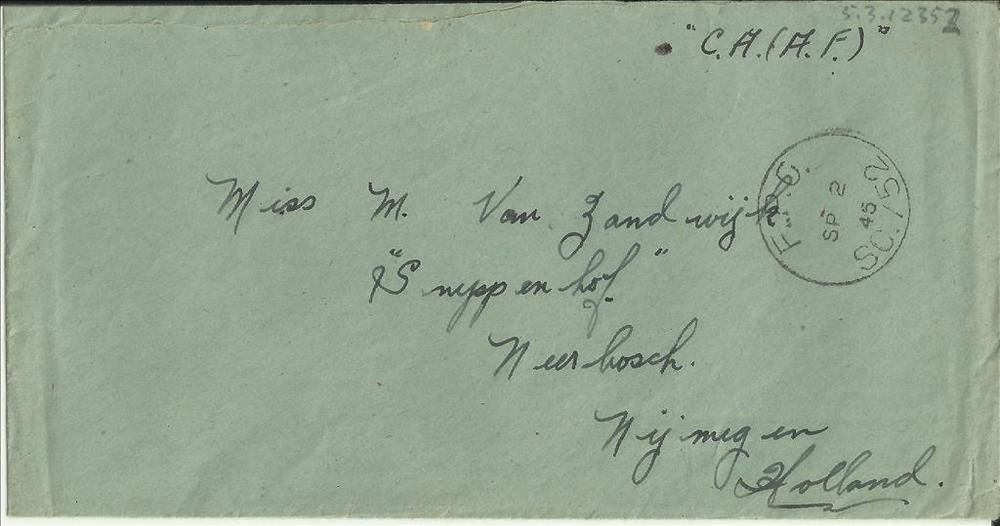 5.3.12352
"C.A.(A.F.)"
F.P.O.
SP 2
45
SC.752
Miss M. Van Zandwijk
"Snippenhof."
Neerbosch.
Nijmegen
Holland.